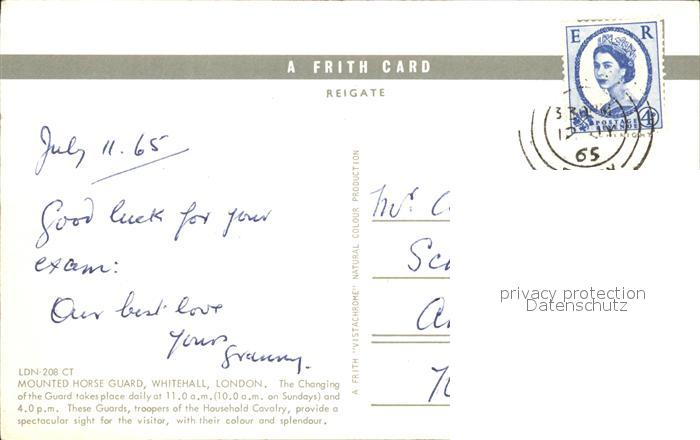 A FRITH CARD
REIGATE
E R
4D
POSTAGE
REVENUE
65
July 11. 65
Good luck for your
exam:
Our best love
yours
Granny.
A FRITH "VISTACHROME" NATURAL COLOUR PRODUCTION
Mr.
privacy protection
Datenschutz
LDN·208 CT
MOUNTED HORSE GUARD, WHITEHALL, LONDON. The Changing
of the Guard takes place daily at 11.0 a.m. (10.0 a.m. on Sundays) and
4.0 p.m. These Guards, troopers of the Household Cavalry, provide a
spectacular sight for the visitor, with their colour and splendour.